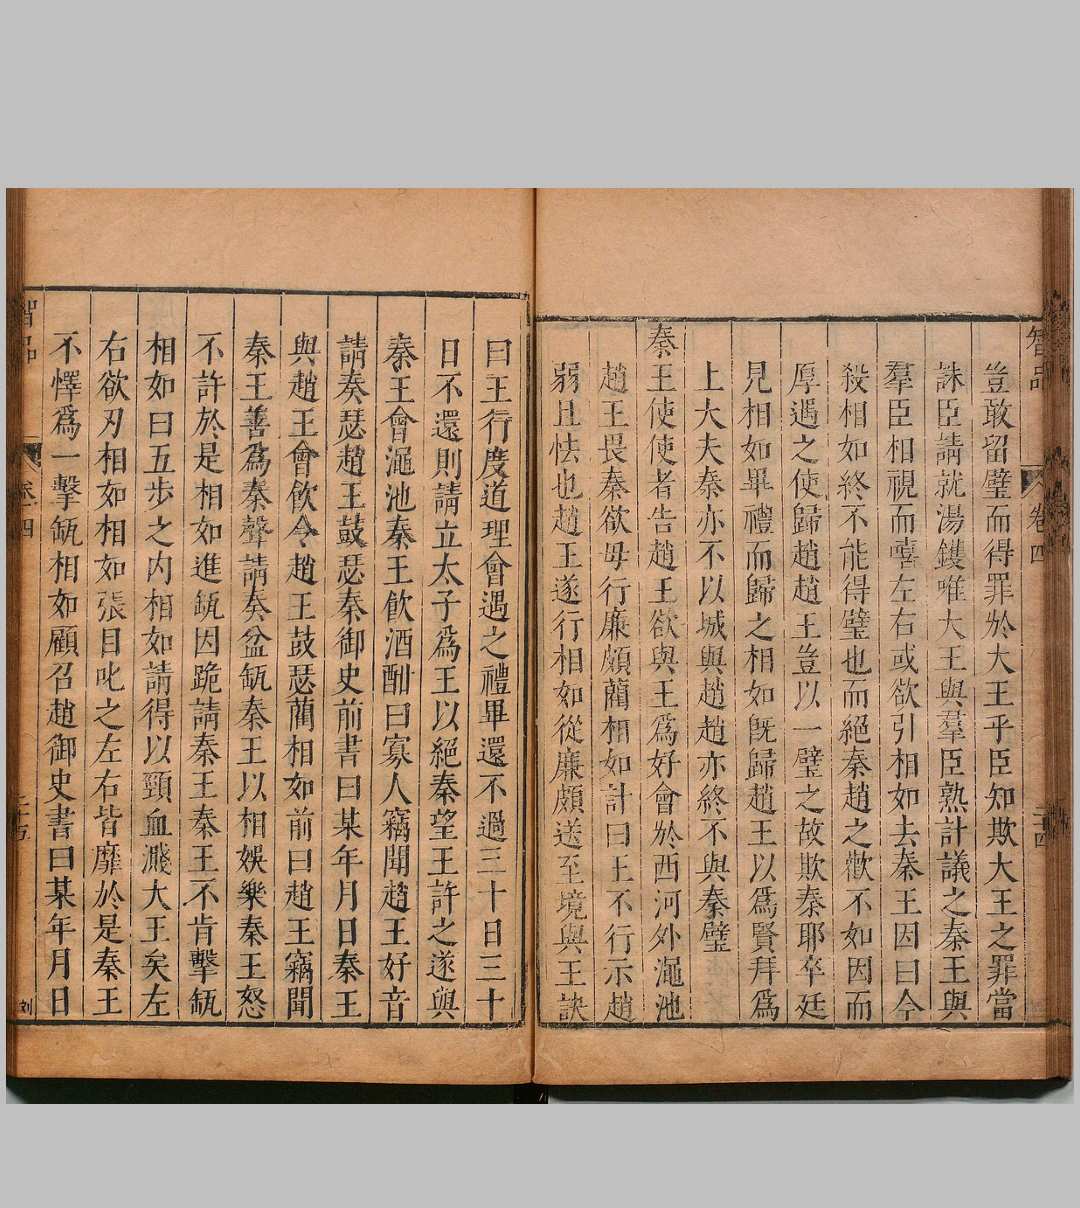 智品
卷四
二十四
豈敢留璧而得罪於大王乎臣知欺大王之罪當
誅臣請就湯鑊唯大王與羣臣熟計議之秦王與
羣臣相視而嘻左右或欲引相如去秦王因曰今
殺相如終不能得璧也而絕秦趙之歡不如因而
厚遇之使歸趙趙王豈以一璧之故欺秦耶卒廷
見相如畢禮而歸之相如旣歸趙王以爲賢拜爲
上大夫秦亦不以城與趙趙亦終不與秦璧
秦王使使者告趙王欲與王爲好會於西河外澠池
趙王畏秦欲毋行廉頗藺相如計曰王不行示趙
弱且怯也趙王遂行相如從廉頗送至境與王訣
曰王行度道理會遇之禮畢還不過三十日三十
日不還則請立太子爲王以絕秦望王許之遂與
秦王會澠池秦王飲酒酣曰寡人竊聞趙王好音
請奏瑟趙王鼓瑟秦御史前書曰某年月日秦王
與趙王會飲令趙王鼓瑟藺相如前曰趙王竊聞
秦王善爲秦聲請奏盆缻秦王以相娛樂秦王怒
不許於是相如進缻因跪請秦王秦王不肯擊缻
相如曰五步之內相如請得以頸血濺大王矣左
右欲刃相如相如張目叱之左右皆靡於是秦王
不懌爲一擊缻相如顧召趙御史書曰某年月日
智品
卷四
二十五